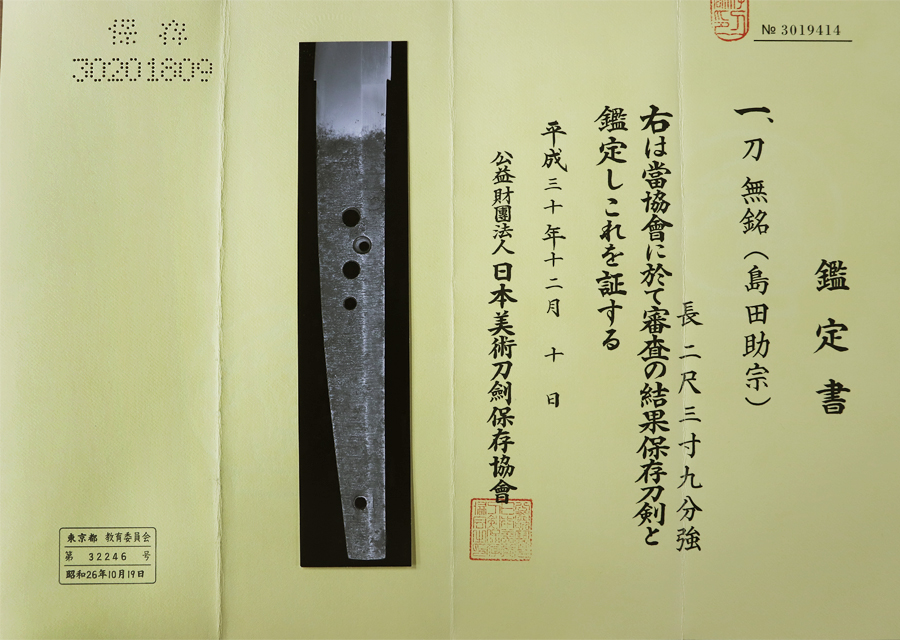 № 3019414
鑑定書
一、刀 無銘(島田助宗)
長 二尺三寸九分強
右は當協會に於て審査の結果保存刀剣と
鑑定しこれを証する
平成三十年十二月 十日
公益財團法人 日本美術刀劍保存協會
保存
30201809
東京都 教育委員会
第 32246 号
昭和26年10月19日